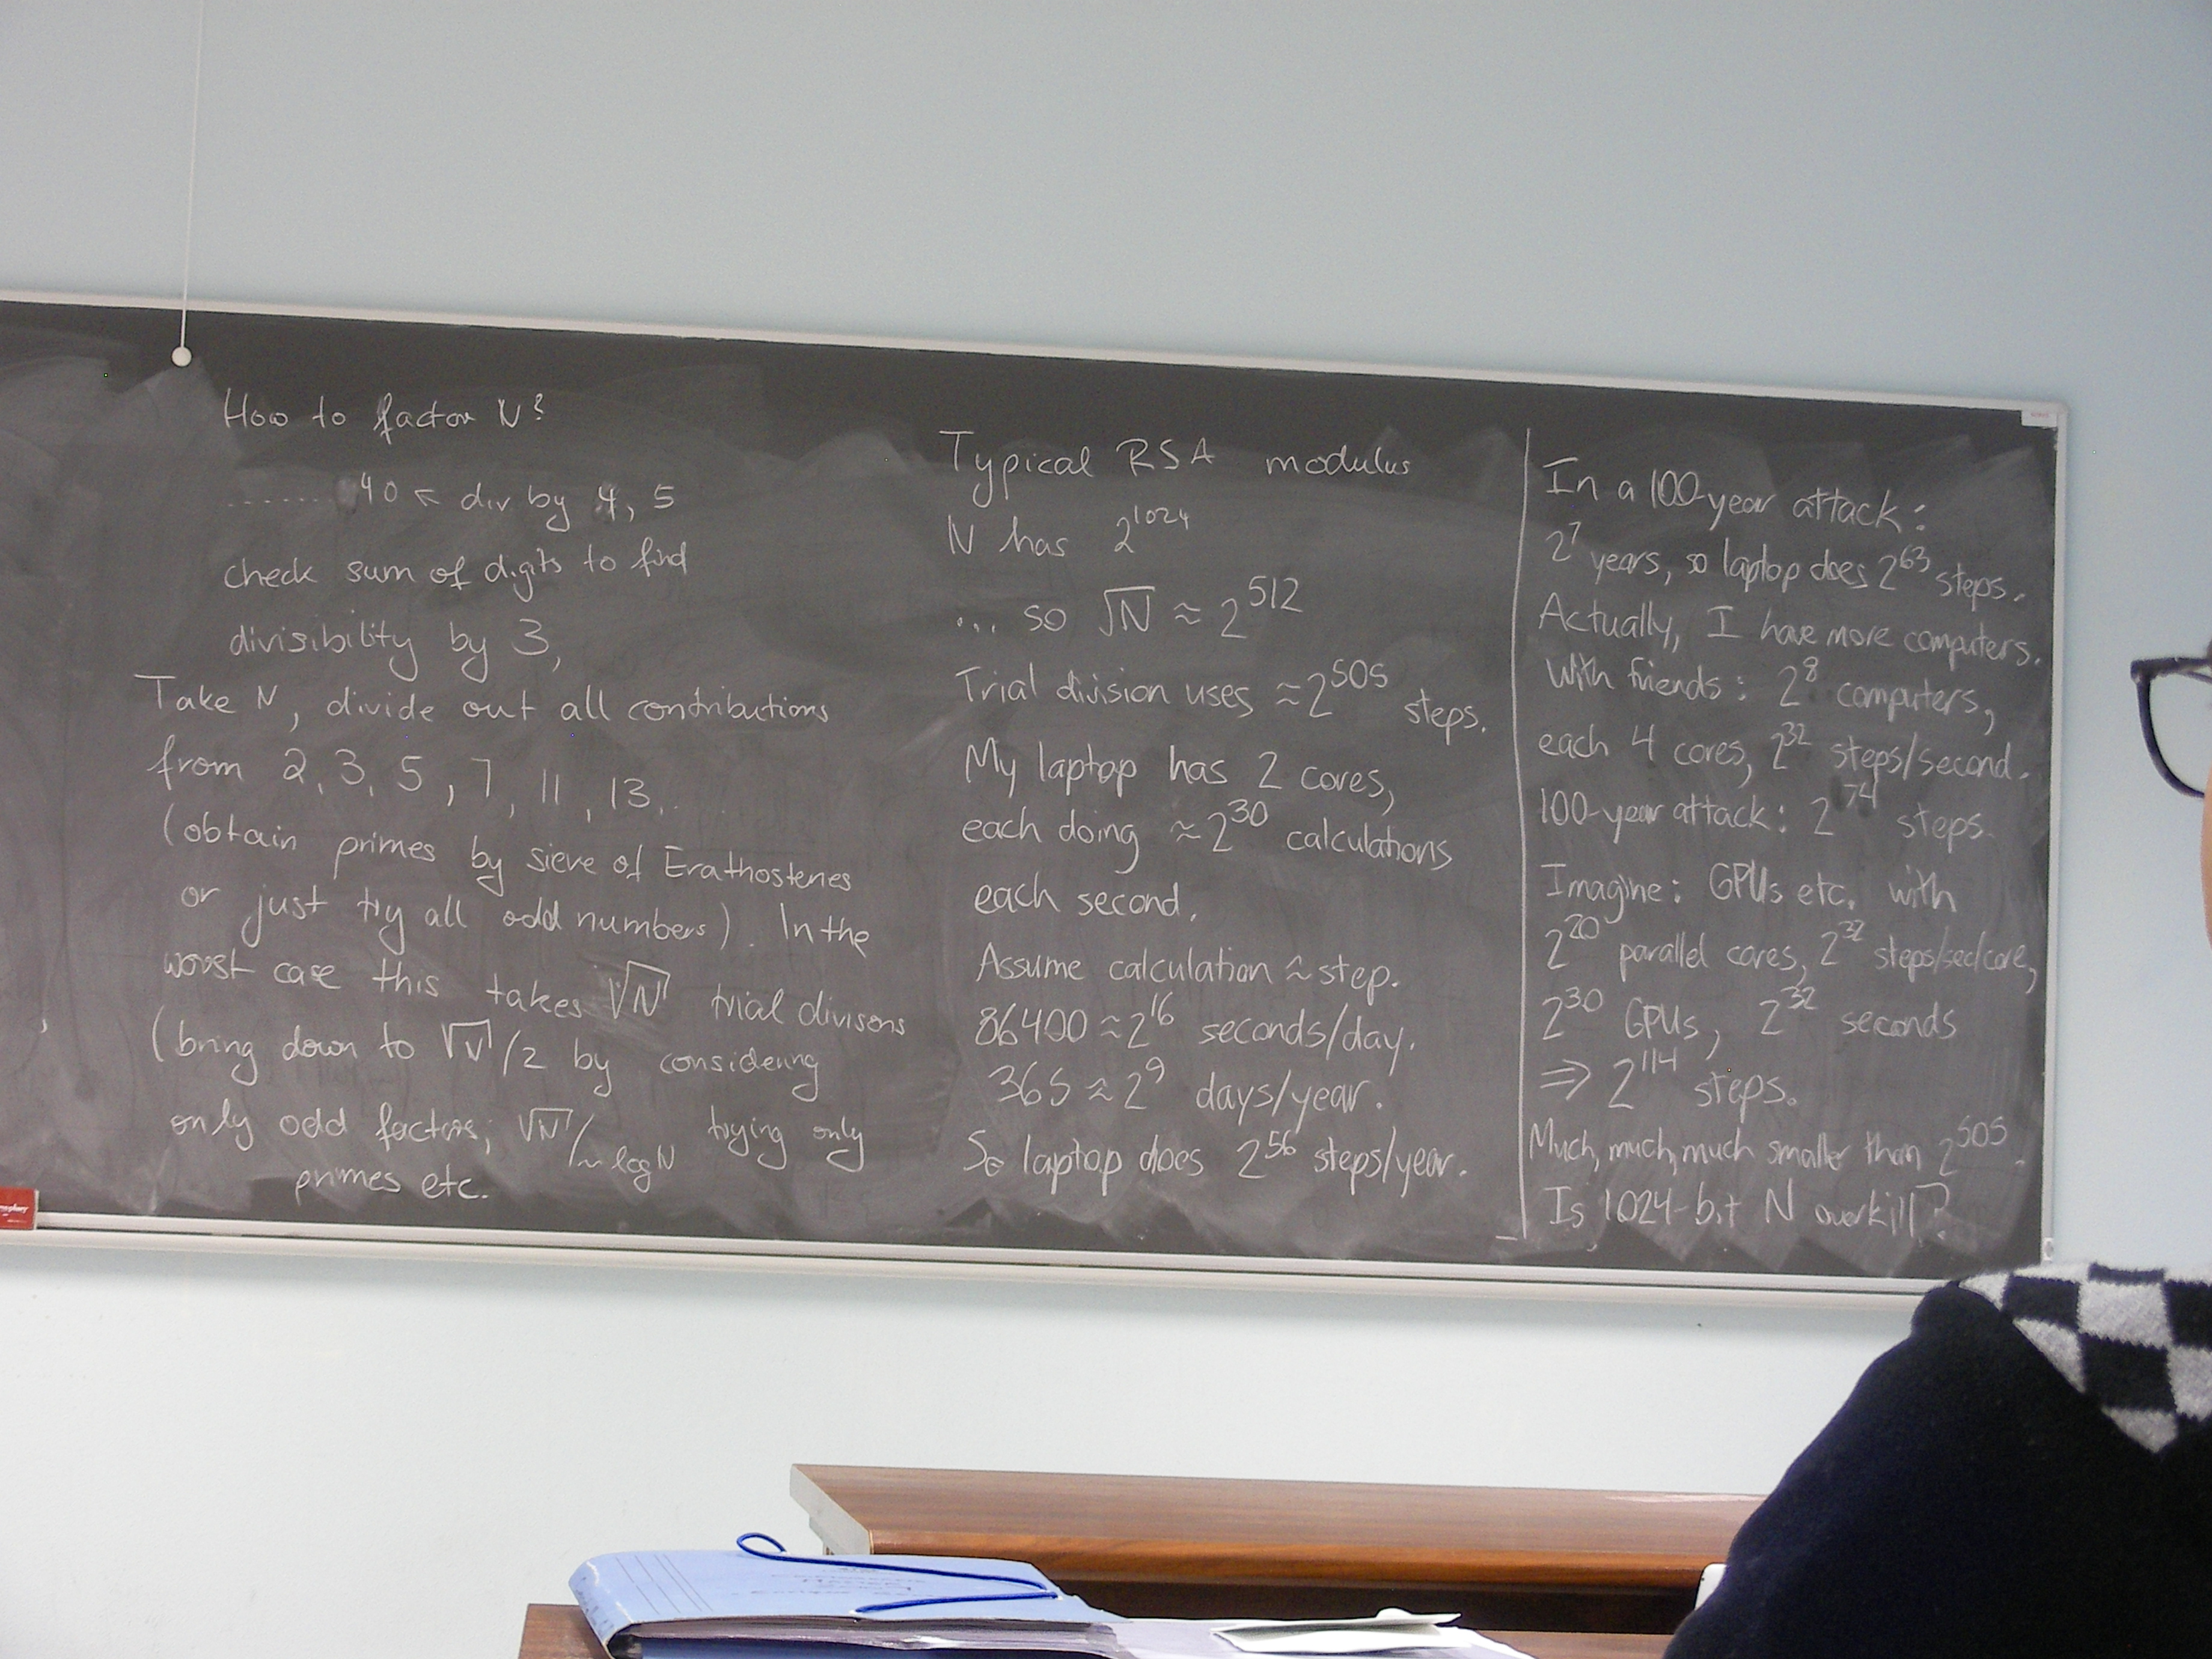 How to factor N?
........40 ← div by 4, 5
check sum of digits to find
divisibility by 3,
Take N, divide out all contributions
from 2, 3, 5, 7, 11, 13,..
(obtain primes by sieve of Erathostenes
or just try all odd numbers). In the
worst case this takes √N trial divisons
(bring down to √N/2 by considering
only odd factors; √N/~log N trying only
primes etc.
Typical RSA modulus
N has 2^1024
... so √N ≈ 2^512
Trial division uses ≈2^505 steps.
My laptop has 2 cores,
each doing ≈2^30 calculations
each second.
Assume calculation ≈ step.
86400 ≈ 2^16 seconds/day.
365 ≈ 2^9 days/year.
So laptop does 2^56 steps/year.
In a 100-year attack:
2^7 years, so laptop does 2^63 steps.
Actually, I have more computers.
With friends: 2^8 computers,
each 4 cores, 2^32 steps/second.
100-year attack: 2^74 steps.
Imagine: GPUs etc. with
2^20 parallel cores, 2^32 steps/sec/core,
2^30 GPUs, 2^32 seconds
⇒ 2^114 steps.
Much, much, much smaller than 2^505.
Is 1024-bit N overkill?